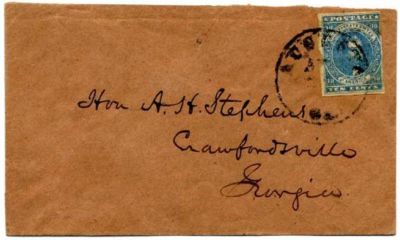 POSTAGE
10 10
TEN CENTS
Hon A. H. Stephens
Crawfordsville
Georgia